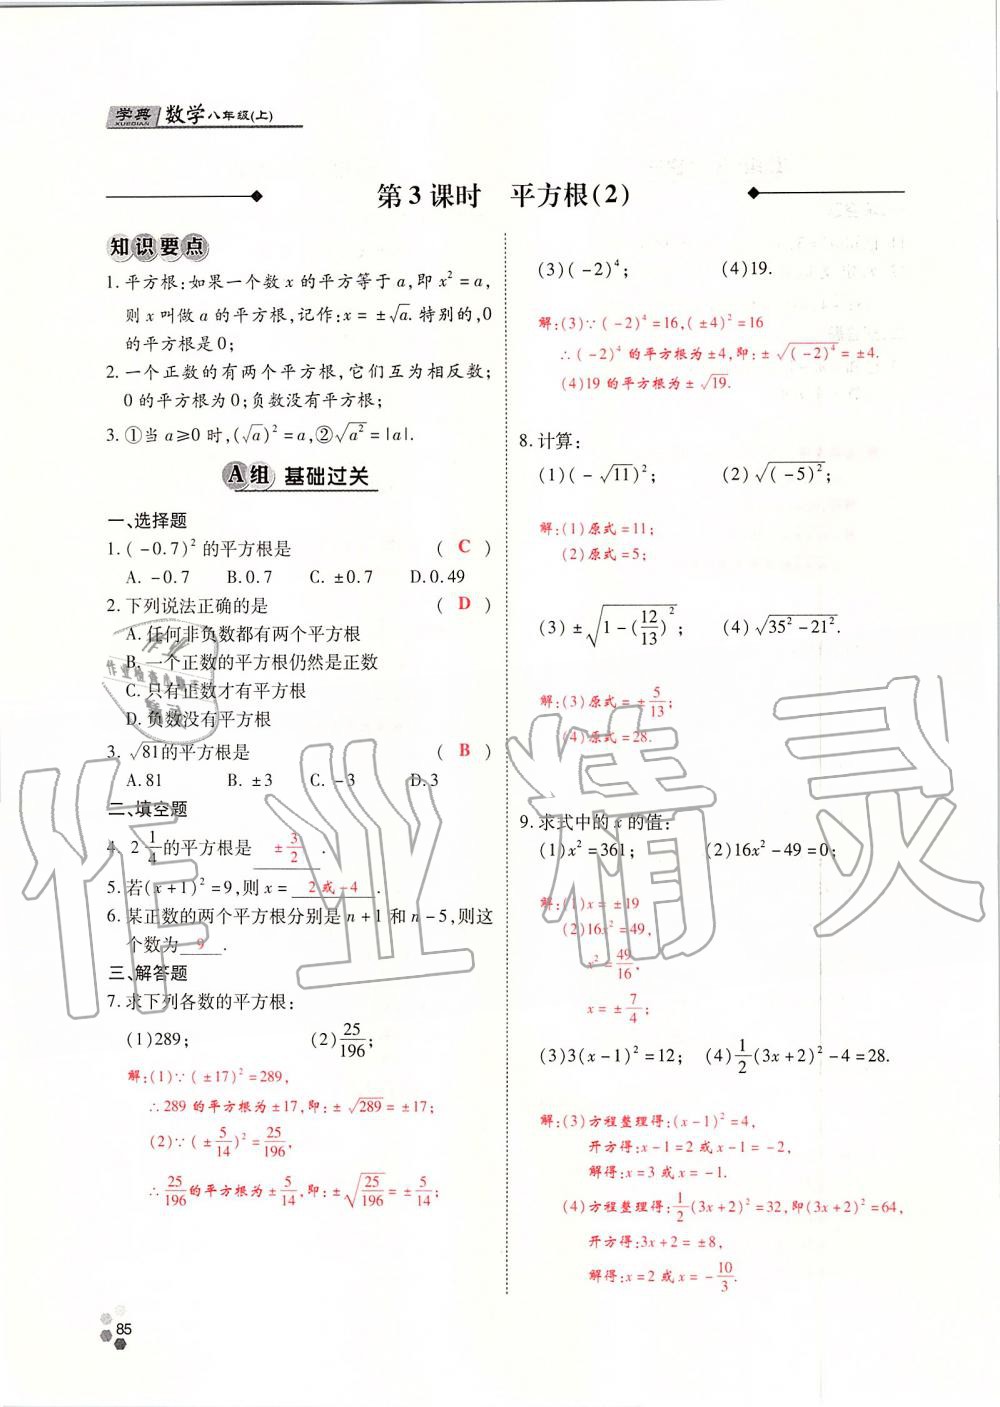 学典 数学八年级(上)
XUEDIAN
第3课时 平方根(2)
知识要点
1. 平方根:如果一个数 x 的平方等于 a,即 x²=a,
则 x 叫做 a 的平方根,记作:x=±√a. 特别的,0
的平方根是 0;
2. 一个正数的有两个平方根,它们互为相反数;
0 的平方根为 0;负数没有平方根;
3. ①当 a≥0 时,(√a)²=a,②√a²=|a|.
A组 基础过关
一、选择题
1. (-0.7)² 的平方根是 ( C )
A. -0.7 B. 0.7 C. ±0.7 D. 0.49
2. 下列说法正确的是 ( D )
A. 任何非负数都有两个平方根
B. 一个正数的平方根仍然是正数
C. 只有正数才有平方根
D. 负数没有平方根
3. √81的平方根是 ( B )
A. 81 B. ±3 C. -3 D. 3
二、填空题
4. 2 1/4 的平方根是 ±3/2 .
5. 若(x+1)²=9,则 x= 2 或 -4 .
6. 某正数的两个平方根分别是 n+1 和 n-5,则这
个数为 9 .
三、解答题
7. 求下列各数的平方根:
(1)289; (2)25/196;
解:(1)∵(±17)²=289,
∴289 的平方根为±17,即:±√289=±17;
(2)∵(±5/14)²=25/196,
∴25/196的平方根为±5/14,即:±√(25/196)=±5/14;
(3)(-2)⁴; (4)19.
解:(3)∵(-2)⁴=16,(±4)²=16
∴(-2)⁴ 的平方根为±4,即:±√(-2)⁴=±4.
(4)19 的平方根为±√19.
8. 计算:
(1)(-√11)²; (2)√(-5)²;
解:(1)原式=11;
(2)原式=5;
(3)±√(1-(12/13)²); (4)√(35²-21²).
解:(3)原式=±5/13;
(4)原式=28.
9. 求式中的 x 的值:
(1)x²=361; (2)16x²-49=0;
解:(1)x=±19
(2)16x²=49,
x²=49/16,
x=±7/4;
(3)3(x-1)²=12; (4)1/2(3x+2)²-4=28.
解:(3)方程整理得:(x-1)²=4,
开方得:x-1=2 或 x-1=-2,
解得:x=3 或 x=-1.
(4)方程整理得:1/2(3x+2)²=32,即(3x+2)²=64,
开方得:3x+2=±8,
解得:x=2 或 x=-10/3.
85
作业精灵